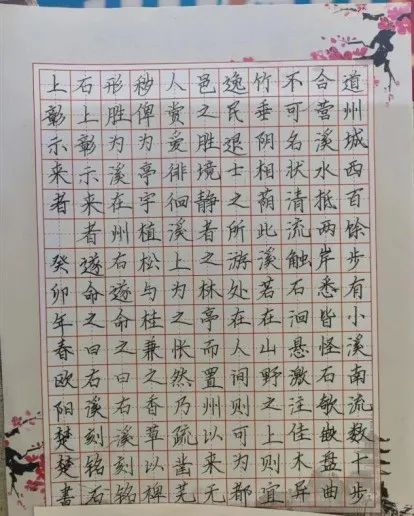 道州城西百馀步有小溪南流数十步
合营溪水抵两岸悉皆怪石欹嵌盘曲
不可名状清流触石洄悬激注佳木异
竹垂阴相荫此溪若在山野之上则宜
逸民退士之所游处在人间则可为都
邑之胜境静者之林亭而置州以来无
人赏爱徘徊溪上为之怅然乃疏凿芜
秽俾为亭宇植松与桂兼之香草以裨
形胜为溪在州右遂命之曰右溪刻铭
石上彰示来者遂命之曰右溪刻铭石
上彰示来者 癸卯年春欧阳楚楚书